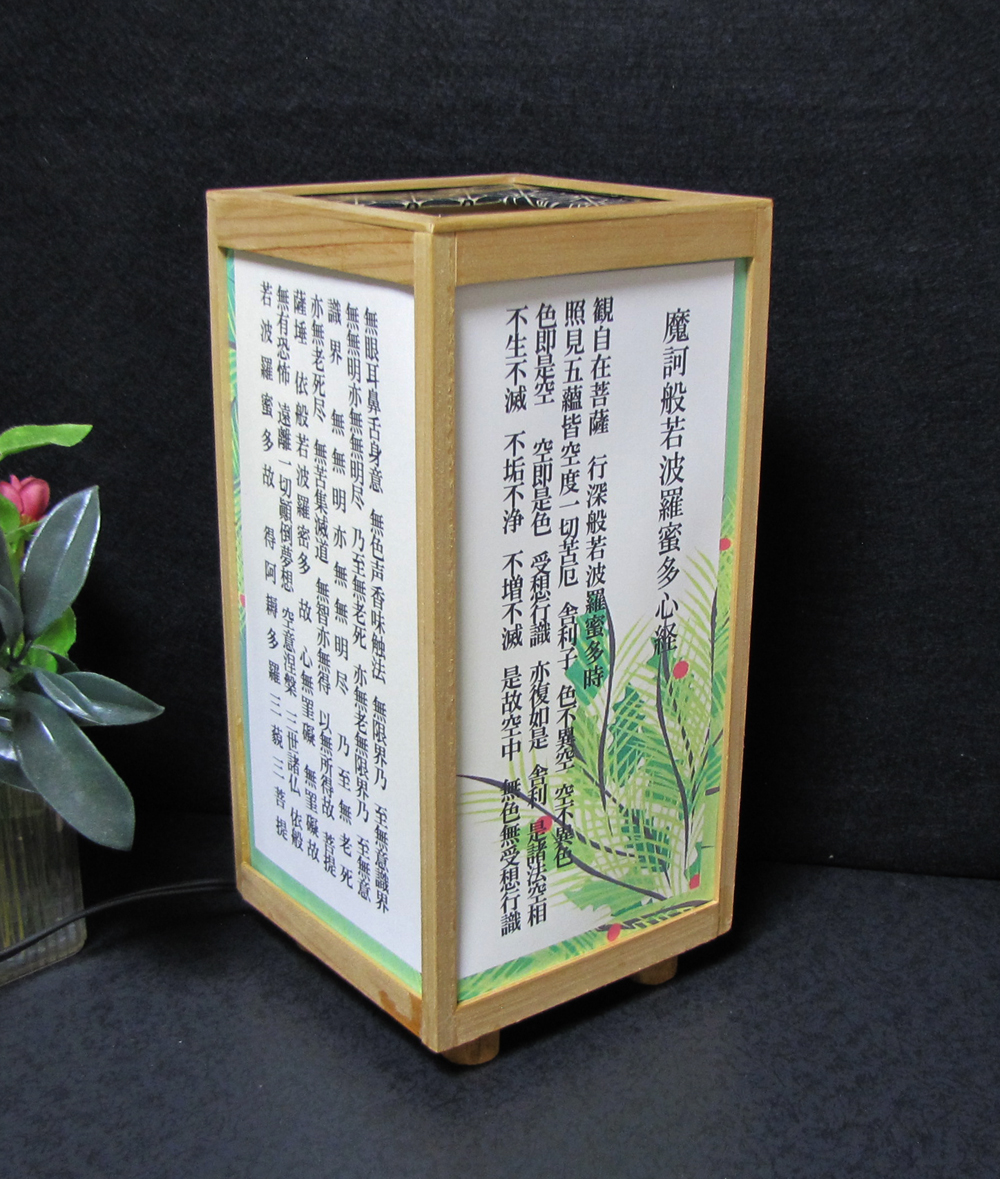 魔訶般若波羅蜜多心経
観自在菩薩 行深般若波羅蜜多時
照見五蘊皆空度一切苦厄 舎利子 色不異空 空不異色
色即是空 空即是色 受想行識 亦復如是 舎利 是諸法空相
不生不滅 不垢不浄 不増不滅 是故空中 無色無受想行識
無眼耳鼻舌身意 無色声香味触法 無限界乃 至無意識界
無無明亦無無明尽 乃至無老死 亦無老無限界乃 至無意
識界 無無明亦無無明尽 乃至無老死
亦無老死尽 無苦集滅道 無智亦無得 以無所得故 菩提
薩埵 依般若波羅密多 故 心無罣礙 無罣礙故
無有恐怖 遠離一切顚倒夢想 空意涅槃 三世諸仏 依般
若波羅蜜多故 得阿耨多羅三藐三菩提